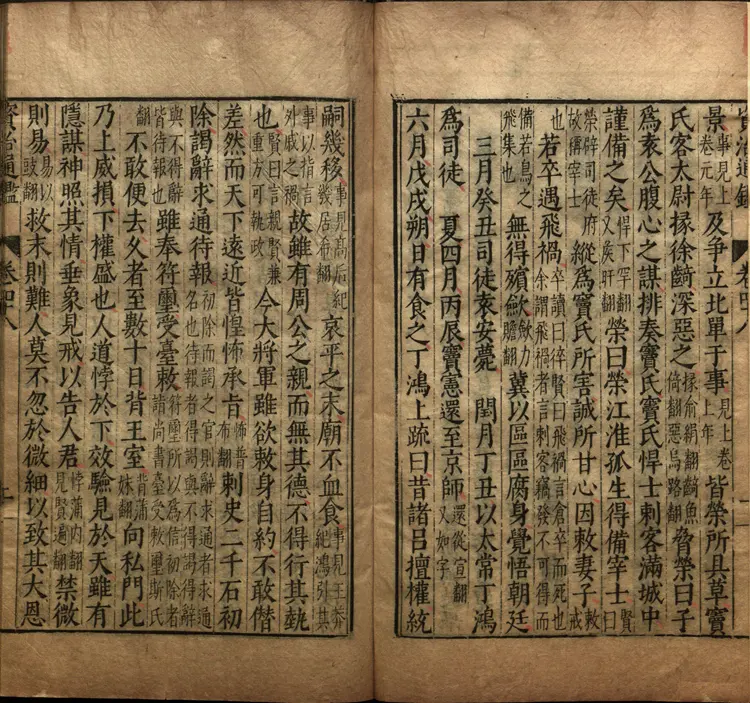 資治通鑑 卷四八
景事見上卷元年及爭立北單于事見上卷上年皆榮所具草竇
氏客太尉掾徐齮深惡之掾俞絹翻齮魚倚翻惡烏路翻脅榮曰子
爲袁公腹心之謀排奏竇氏竇氏悍士刺客滿城中
謹備之矣悍下罕翻又矦旰翻榮曰榮江淮孤生得備宰士賢曰
榮辟司徒府故稱宰士縱爲竇氏所害誠所甘心因敕妻子敕戒
也若卒遇飛禍卒讀曰猝賢曰飛禍言倉卒而死也余謂飛禍者言刺客竊發不可得而
備若鳥之飛集也無得殯斂斂力贍翻冀以區區腐身覺悟朝廷
三月癸丑司徒袁安薨 閏月丁丑以太常丁鴻
爲司徒 夏四月丙辰竇憲還至京師還從宣翻又如字
六月戊戌朔日有食之丁鴻上疏曰昔諸呂擅權統
嗣幾移事見高后紀幾居希翻哀平之末廟不血食事見王莽紀鴻引其
事以指言外戚之禍故雖有周公之親而無其德不得行其埶
也賢曰言親賢兼重方可執政今大將軍雖欲敕身自約不敢僭
差然而天下遠近皆惶怖承旨怖普布翻刺史二千石初
除謁辭求通待報初除而謁之官則辭求通者求通名也待報者得謁與不得謁得辭
與不得辭皆待報也雖奉符璽受臺敕符璽所以爲信初除者詣尚書臺受敕璽斯氏
翻不敢便去久者至數十日背王室背蒲妹翻向私門此
乃上威損下權盛也人道悖於下效驗見於天雖有
隱謀神照其情垂象見戒以告人君悖蒲內翻見賢遍翻禁微
則易易以豉翻救末則難人莫不忽於微細以致其大恩
資治通鑑 卷四八